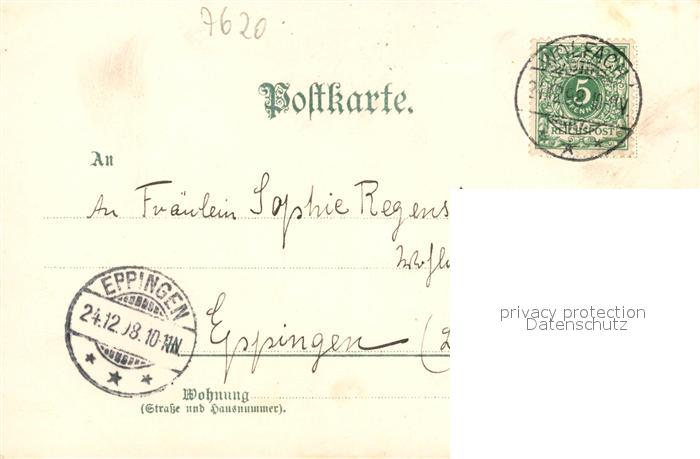 7620
WOLFACH
5
PFENNIG
REICHSPOST
Postkarte.
An
An Fräulein Sophie Regens
Wohl
EPPINGEN
24.12.98.10-11N.
Eppingen (
privacy protection
Datenschutz
Wohnung
(Straße und Hausnummer).